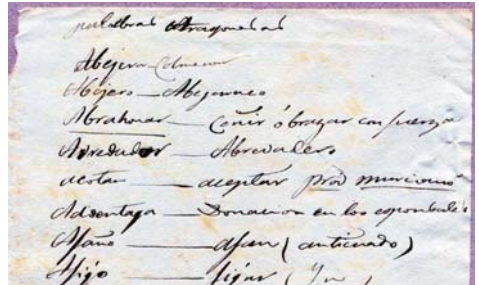 palabras Aragonesas
Abejera - Colmenar
Abejero - Abejaruco
Abrahonar - Ceñir ó brazar con fuerza
Abredador - Abrevadero
acotar - aceptar prov murciano
Adventaja - Donacion en los esponsales
Afaño - afan (anticuado)
Afigo - figar